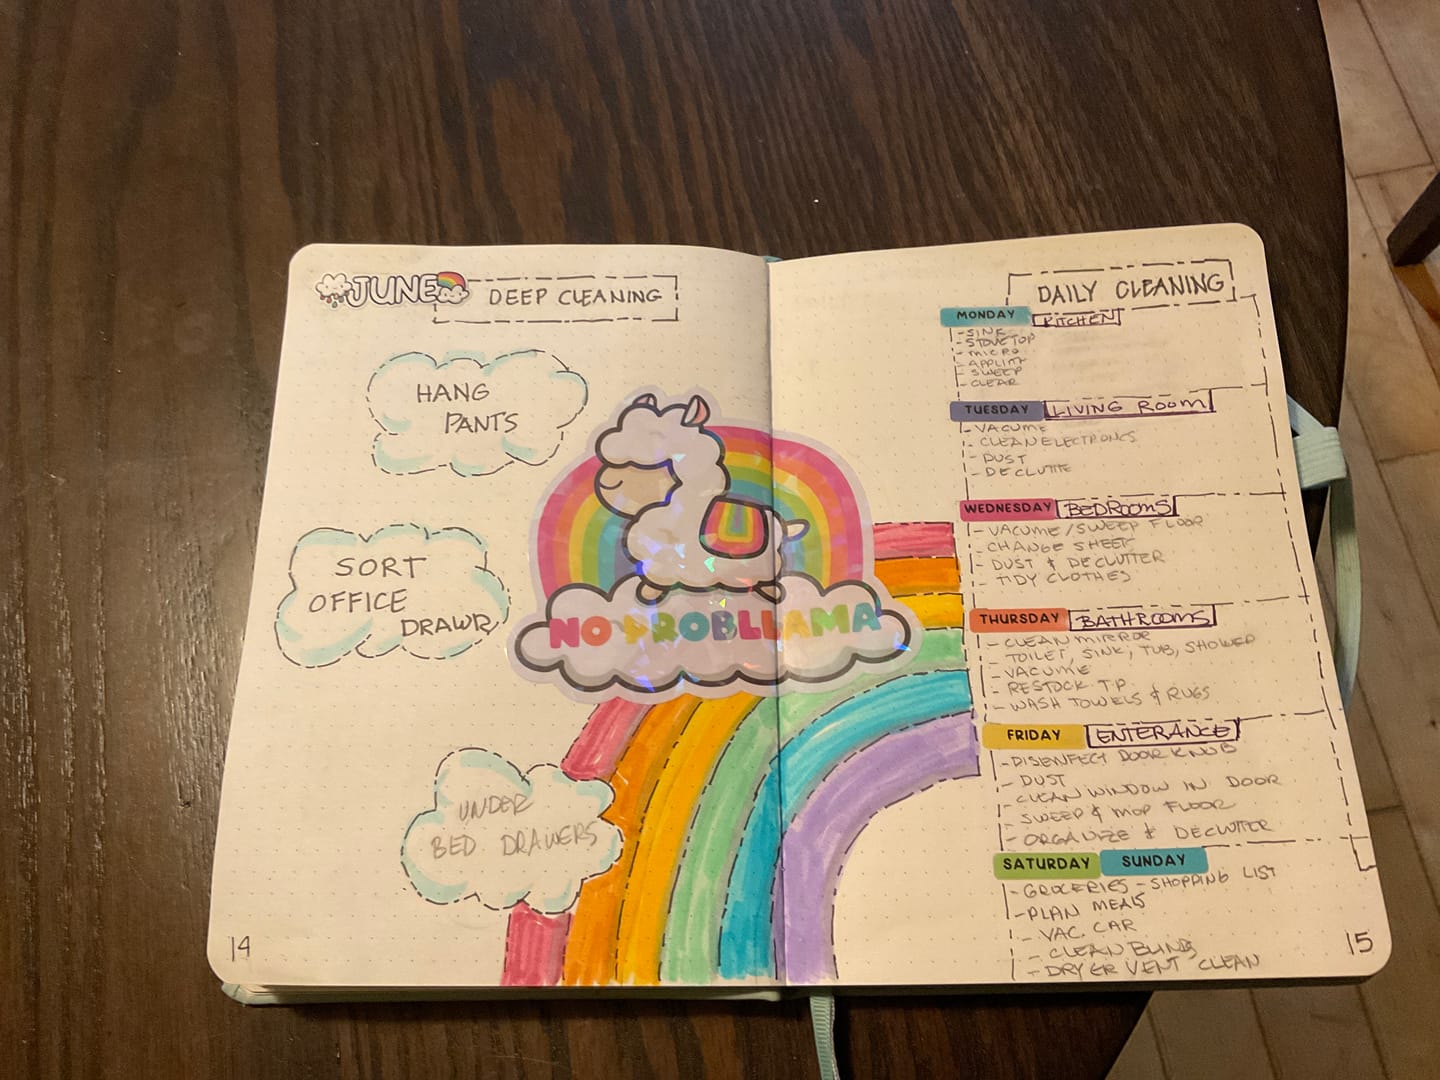 JUNE
DEEP CLEANING
HANG
PANTS
SORT
OFFICE
DRAWR
UNDER
BED DRAWERS
NO PROBLLAMA
14
DAILY CLEANING
MONDAY KITCHEN
- SINK
- STOVETOP
- MICRO
- SWEEP
- CLEAR
TUESDAY LIVING ROOM
- VACUME
- CLEAN ELECTRONCS
- DUST
- DECLUTTE
WEDNESDAY BEDROOMS
- VACUME/SWEEP FLOOR
- CHANGE SHEET
- DUST & DECLUTTER
- TIDY CLOTHES
THURSDAY BATHROOMS
- CLEAN MIRROR
- TOILET, SINK, TUB, SHOWER
- VACUME
- RESTOCK T.P.
- WASH TOWELS & RUGS
FRIDAY ENTERANCE
- DISENFECT DOOR KNOB
- DUST
- CLEAN WINDOW IN DOOR
- SWEEP & MOP FLOOR
- ORGANIZE & DECLUTTER
SATURDAY SUNDAY
- GROCERIES - SHOPPING LIST
- PLAN MEALS
- VAC. CAR
- CLEAN BLINDS
- DRYER VENT CLEAN
15